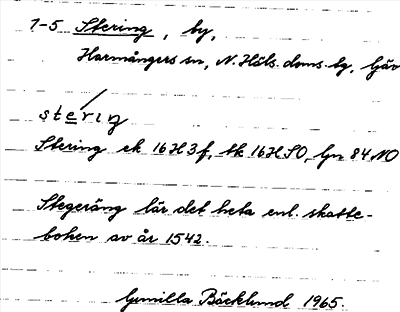 1-5 Stering, by,
Harmångers sn, N. Häls. doms. bg, Gäv
sterıŋ
Stering ek 16H3f, tk 16H SO, Gn 84 NO
Stegeräng lär det heta enl. skatte-
boken av år 1542.
Gunilla Bäcklund 1965.